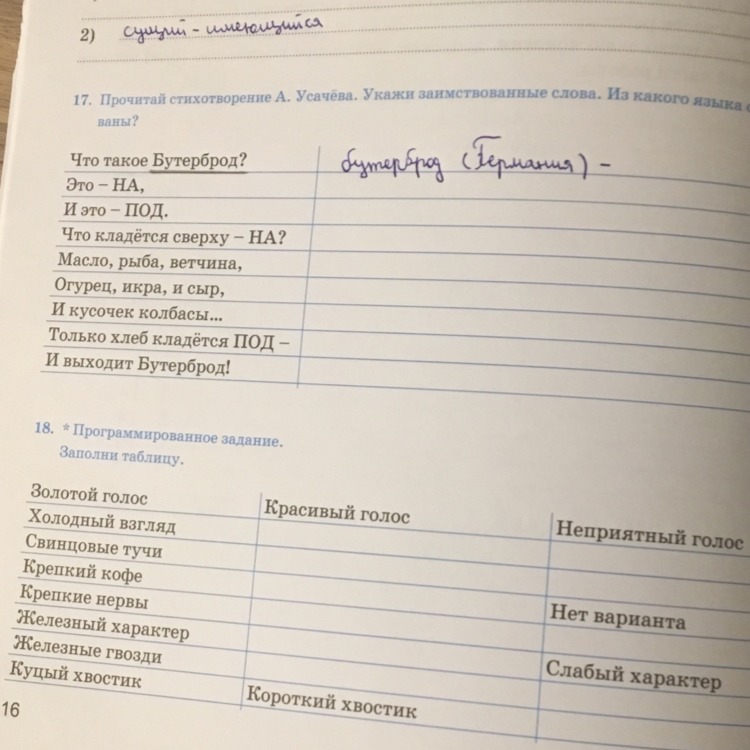 2) сущий - имеющийся
17. Прочитай стихотворение А. Усачёва. Укажи заимствованные слова. Из какого языка
ваны?
Что такое Бутерброд? бутерброд (Германия) –
Это – НА,
И это – ПОД.
Что кладётся сверху – НА?
Масло, рыба, ветчина,
Огурец, икра, и сыр,
И кусочек колбасы...
Только хлеб кладётся ПОД –
И выходит Бутерброд!
18. * Программированное задание.
Заполни таблицу.
Золотой голос Красивый голос Неприятный голос
Холодный взгляд
Свинцовые тучи
Крепкий кофе Нет варианта
Крепкие нервы
Железный характер Слабый характер
Железные гвозди
Куцый хвостик Короткий хвостик
16